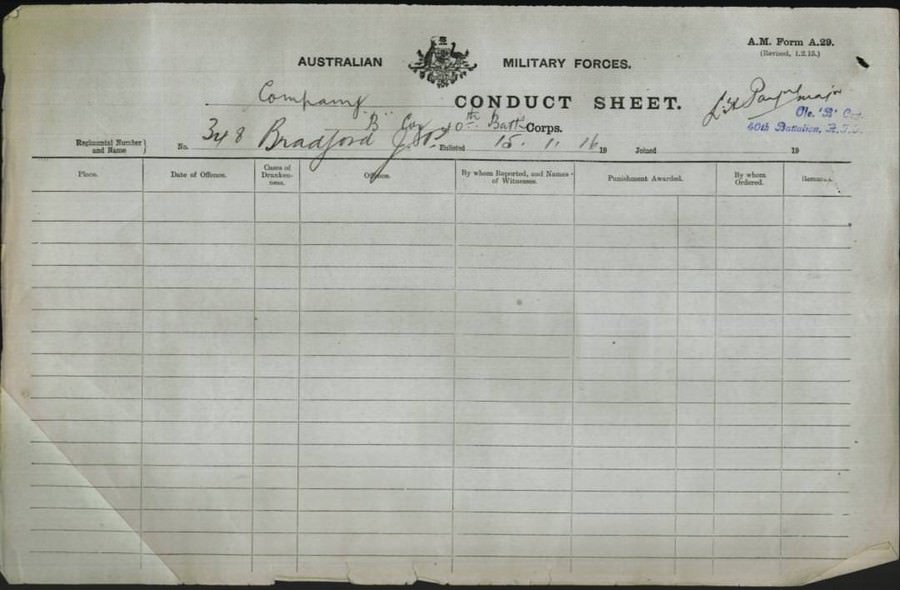 A.M. Form A.29.
(Revised, 1.2.15.)
AUSTRALIAN MILITARY FORCES.
Company CONDUCT SHEET.
O/c. 'B' Coy.
40th Battalion, A.I.F.
"B" Coy 40th Batt. Corps.
Regimental Number and Name } No. 348 Bradford Enlisted 15. 1. 1916 Joined 19
Place. Date of Offence. Cases of Drunkenness. Offence. By whom Reported, and Names of Witnesses. Punishment Awarded. By whom Ordered. Remarks.